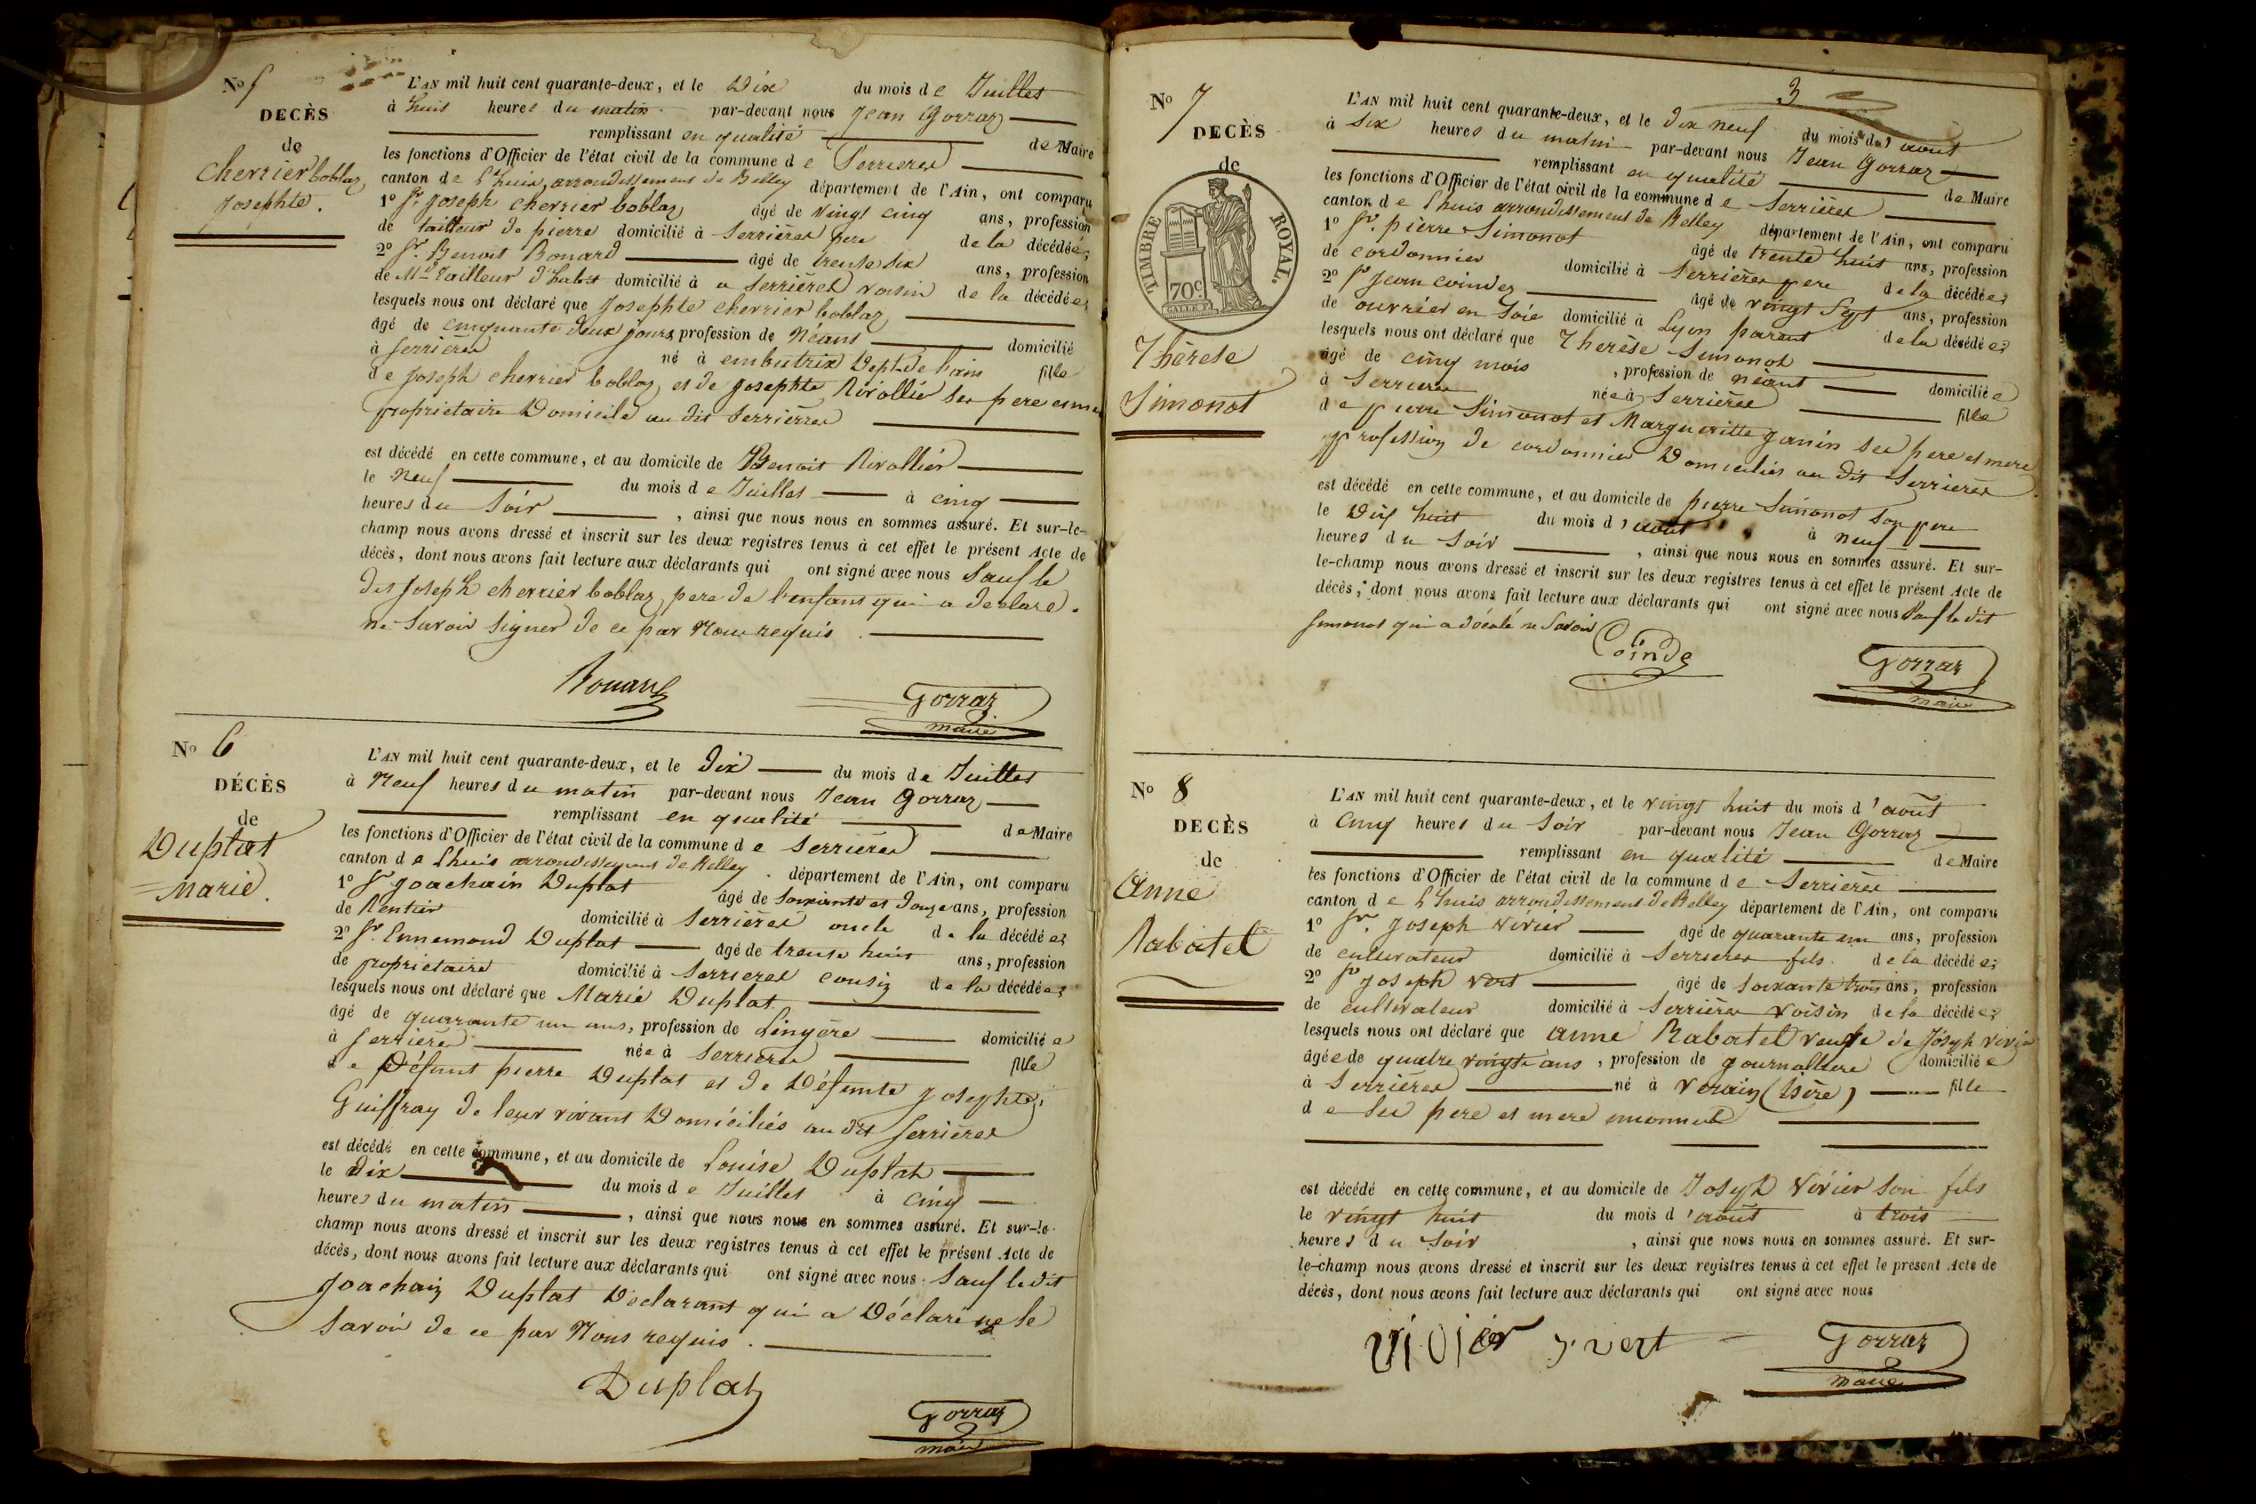 No 5
DECÈS
de
Cherrier boblaz
Josephte.
L'AN mil huit cent quarante-deux, et le Dix du mois de Juillet
à huit heures du matin par-devant nous Jean Gorraz
remplissant en qualité de Maire
les fonctions d'Officier de l'état civil de la commune de Serrieres
canton de Lhuis, arrondissement de Belley département de l'Ain, ont comparu
1° Sr. joseph cherrier boblaz âgé de vingt cinq ans, profession
de tailleur de pierre domicilié à Serrières pere de la décédée;
2° Sr. Benoit Bonard âgé de trente six ans, profession
de Md. Tailleur d'habit domicilié à a Serrières voisin de la décédée;
lesquels nous ont déclaré que Josephte cherrier boblaz
âgé de cinquante deux jours, profession de Néant domicilié
à Serrières né à embutrix Dept. de lain fille
de Joseph cherrier boblaz et de Josephte Rivollier ses pere et mere
proprietaire Domicilé au dit Serrières
est décédé en cette commune, et au domicile de Benoit Rivollier
le Neuf du mois de Juillet à cinq
heures du Soir, ainsi que nous nous en sommes assuré. Et sur-le-
champ nous avons dressé et inscrit sur les deux registres tenus à cet effet le présent Acte de
décès, dont nous avons fait lecture aux déclarants qui ont signé avec nous Sauf le
dit Joseph cherrier boblaz pere de l'enfant qui a declaré
ne Savoir Signer de ce par Nous requis.
Gorraz
maire
No 6
DÉCÈS
de
Duplat
Marie.
L'AN mil huit cent quarante-deux, et le Dix du mois de Juillet
à Neuf heures du matin par-devant nous Jean Gorraz
remplissant en qualité de Maire
les fonctions d'Officier de l'état civil de la commune de Serrieres
canton de Lhuis arrondissement de Belley. département de l'Ain, ont comparu
1° Sr Joachain Duplat âgé de Soixante et douze ans, profession
de Rentier domicilié à Serrières oncle de la décédée;
2° Sr. Ennemond Duplat âgé de trente huit ans, profession
de proprietaire domicilié à Serrieres cousin de la décédée;
lesquels nous ont déclaré que Marie Duplat
âgé de quarante un ans, profession de Lingère domiciliée
à Serrières née à Serrières fille
de Défunt pierre Duplat et de Défunte Josephte
Guiffray de leur vivant Domiciliés au dit Serrières
est décédé en cette commune, et au domicile de Louise Duplat
le Dix du mois de Juillet à cinq
heures du matin, ainsi que nous nous en sommes assuré. Et sur-le-
champ nous avons dressé et inscrit sur les deux registres tenus à cet effet le présent Acte de
décès, dont nous avons fait lecture aux déclarants qui ont signé avec nous. Sauf le dit
Joachain Duplat Declarant qui a Déclaré ne le
Savoir de ce par Nous requis.
Duplat
Gorraz
maire
3
No 7
DECÈS
de
TIMBRE ROYAL.
70c
Thérese
Simonot
L'AN mil huit cent quarante-deux, et le dix neuf du mois d'aout
à Six heures du matin par-devant nous Jean Gorraz
remplissant en qualité de Maire
les fonctions d'Officier de l'état civil de la commune de Serrières
canton de Lhuis arrondissement de Belley département de l'Ain, ont comparu
1° Sr. pierre Simonot âgé de trente huit ans, profession
de cordonnier domicilié à Serrières pere de la décédée;
2° Sr Jean coindez âgé de vingt Sept ans, profession
de ouvrier en Soie domicilié à Lyon parent de la décédée;
lesquels nous ont déclaré que Therèse Simonot
âgé de cinq mois, profession de néant domiciliée
à Serrieres née à Serrières fille
de pierre Simonot et Margueritte janin Ses pere et mere
profession de cordonnier Domiciliés au dit Serrieres
est décédé en cette commune, et au domicile de pierre Simonot Son pere
le Dix huit du mois d'aout à neuf
heures du Soir, ainsi que nous nous en sommes assuré. Et sur-
le-champ nous avons dressé et inscrit sur les deux registres tenus à cet effet le présent Acte de
décès, dont nous avons fait lecture aux déclarants qui ont signé avec nous Sauf le dit
Simonot qui a décalé ne Savoir
Coinde
Gorraz
maire
No 8
DECÈS
de
Anne
Rabatel
L'AN mil huit cent quarante-deux, et le vingt huit du mois d'août
à Cinq heures du Soir par-devant nous Jean Gorraz
remplissant en qualité de Maire
les fonctions d'Officier de l'état civil de la commune de Serrières
canton de Lhuis arrondissement de Belley département de l'Ain, ont comparu
1° Sr. Joseph Vivier âgé de quarante un ans, profession
de cultivateur domicilié à Serrieres fils de la décédée;
2° Sr Joseph Vert âgé de Soixante trois ans, profession
de cultivateur domicilié à Serrières Voisin de la décédée;
lesquels nous ont déclaré que anne Rabatel veuve de Joseph Vivier
âgée de quatre vingts ans, profession de journalliere domiciliée
à Serrières né à Verain (Isère) fille
de Ses pere et mere inconnus
est décédé en cette commune, et au domicile de Joseph Vivier Son fils
le vingt huit du mois d'août à trois
heures du Soir, ainsi que nous nous en sommes assuré. Et sur-
le-champ nous avons dressé et inscrit sur les deux registres tenus à cet effet le présent Acte de
décès, dont nous avons fait lecture aux déclarants qui ont signé avec nous
vivier j. vert
Gorraz
maire